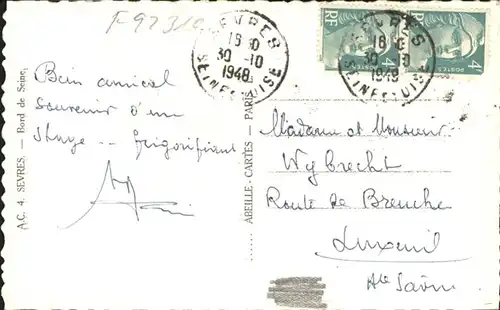 F97310
SEVRES
18 30
30-10
1948
SEINE ET OISE
RF
POSTES
4
SEVRES
18 30
30-10
1948
SEINE ET OISE
POSTES
4
Bien amical
souvenir d'un
stage -- frigorifiant
Madame et Monsieur
Wybrecht
Route de Breuche
Luxeuil
Hte Saône
A.C. 4. SEVRES. — Bord de Seine.
ABEILLE-CARTES — PARIS